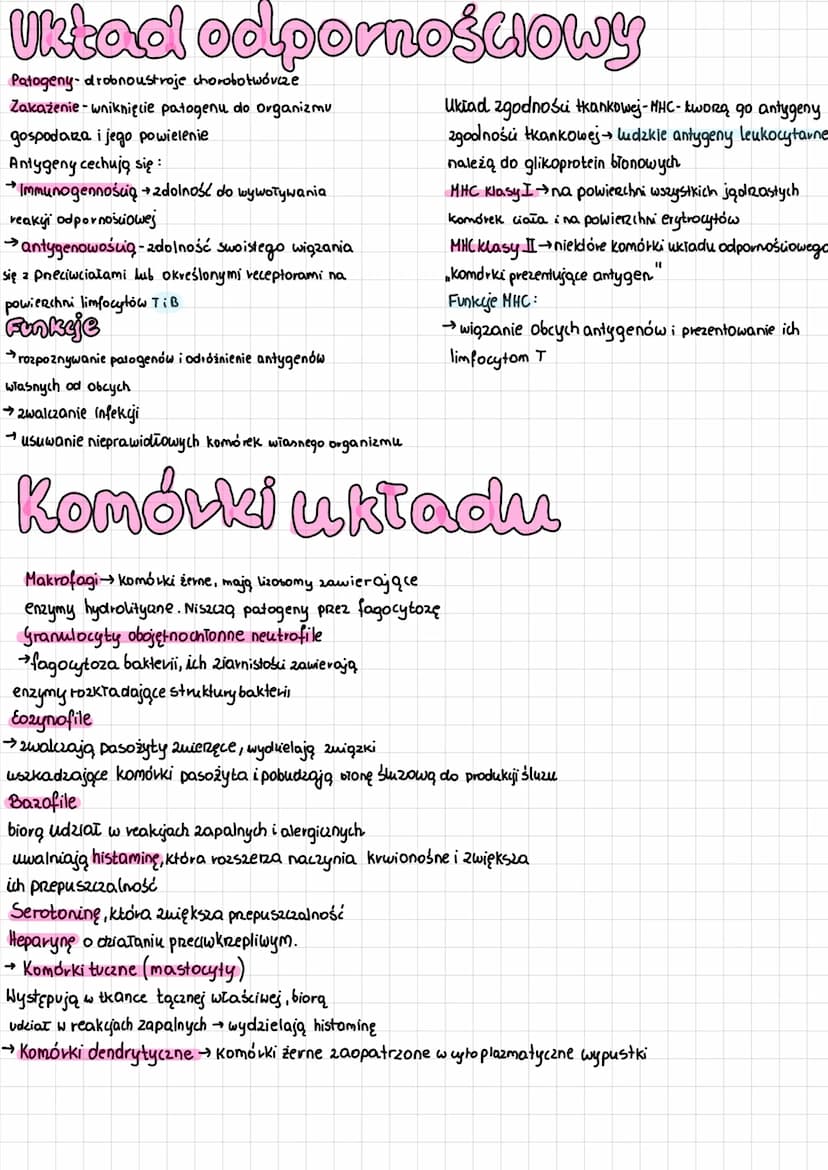 Układ odpornościowy
Patogeny - drobnoustroje chorobotwórcze
Zakażenie - wniknięcie patogenu do organizmu
gospodarza i jego powielenie
Antygeny cechują się:
→ Immunogennością → zdolność do wywoływania
reakcji odpornościowej
→ antygenowością - zdolność swoistego wiązania
się z przeciwciałami lub określonymi receptorami na
powierzchni limfocytów T i B
Funkcje
→ rozpoznywanie patogenów i odróżnienie antygenów
własnych od obcych
→ zwalczanie infekcji
→ usuwanie nieprawidłowych komórek własnego organizmu
Układ zgodności tkankowej - MHC - tworzą go antygeny
zgodności tkankowej → ludzkie antygeny leukocytarne
należą do glikoprotein błonowych
MHC klasy I → na powierzchni wszystkich jądrzastych
komórek ciała i na powierzchni erytrocytów
MHC klasy II → niektóre komórki układu odpornościowego
„komórki prezentujące antygen"
Funkcje MHC:
→ wiązanie obcych antygenów i prezentowanie ich
limfocytom T
Komórki układu
Makrofagi → komórki żerne, mają lizosomy zawierające
enzymy hydrolityczne. Niszczą patogeny przez fagocytozę
Granulocyty obojętnochłonne neutrofile
→ fagocytoza bakterii, ich ziarnistości zawierają
enzymy rozkładające struktury bakterii
Eozynofile
→ zwalczają pasożyty zwierzęce, wydzielają związki
uszkadzające komórki pasożyta i pobudzają błonę śluzową do produkcji śluzu
Bazofile
biorą udział w reakcjach zapalnych i alergicznych
uwalniają histaminę, która rozszerza naczynia krwionośne i zwiększa
ich przepuszczalność
Serotoninę, która zwiększa przepuszczalność
Heparynę o działaniu przeciwkrzepliwym.
→ Komórki tuczne (mastocyty)
Występują w tkance łącznej właściwej, biorą
udział w reakcjach zapalnych → wydzielają histaminę
→ Komórki dendrytyczne → komórki żerne zaopatrzone w cytoplazmatyczne wypustki